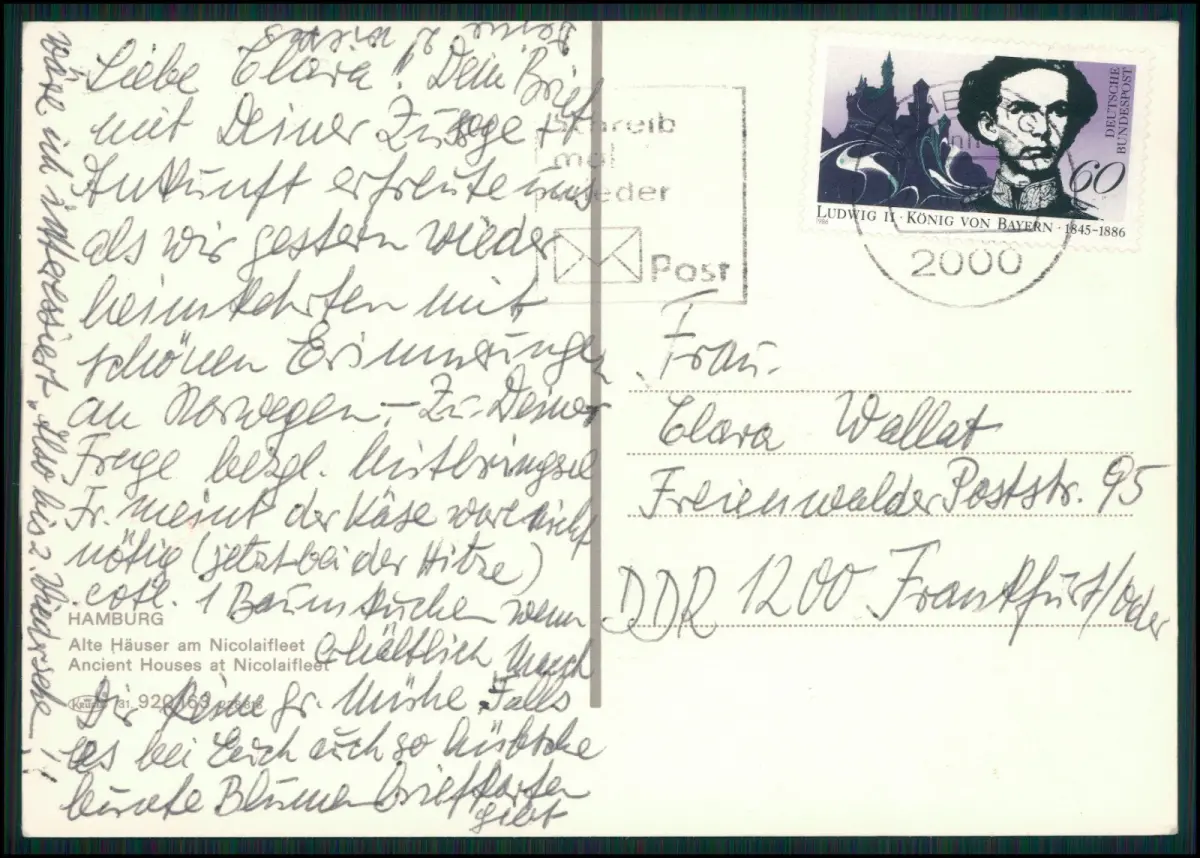 Liebe Clara! Dein Brief
mit Deiner Zusage +
Ankunft erfreute uns
als wir gestern wieder
heimkehrten mit
schönen Erinnerungen
an Norwegen. – Zu Deiner
Frage bezgl. Mitbringsel
Fr. meint der Käse wäre nicht
nötig (jetzt bei der Hitze)
evtl. 1 Baumkuchen wenn
erhältlich, mach
Dir keine gr. Mühe. Falls
es bei Euch auch so hübsche
bunte Blumenbriefkarten
gibt
wäre ich interessiert. Also bis z. Wiedersehen!
HAMBURG
Alte Häuser am Nicolaifleet
Ancient Houses at Nicolaifleet
KRÜGER 31 920/163
Schreib
mal
wieder
Post
2000
DEUTSCHE
BUNDESPOST
60
LUDWIG II · KÖNIG VON BAYERN · 1845–1886
1986
Frau
Clara Wallat
Freienwalder Poststr. 95
DDR 1200 Frankfurt/Oder